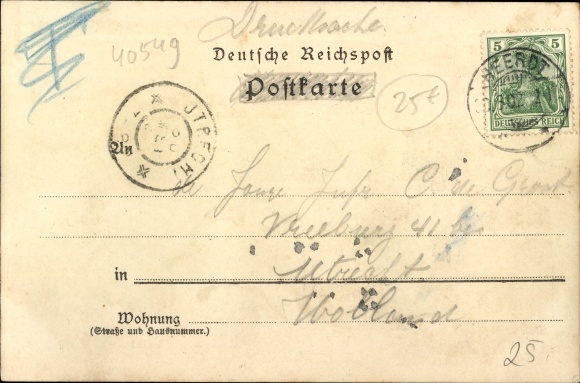 Drucksache.
40549
Deutsche Reichspost
Postkarte
25€
5 5
DEUTSCHES REICH
UTRECHT
An
C. de Groot
41 bis
in Utrecht
Holland
Wohnung
(Straße und Hausnummer.)
25.